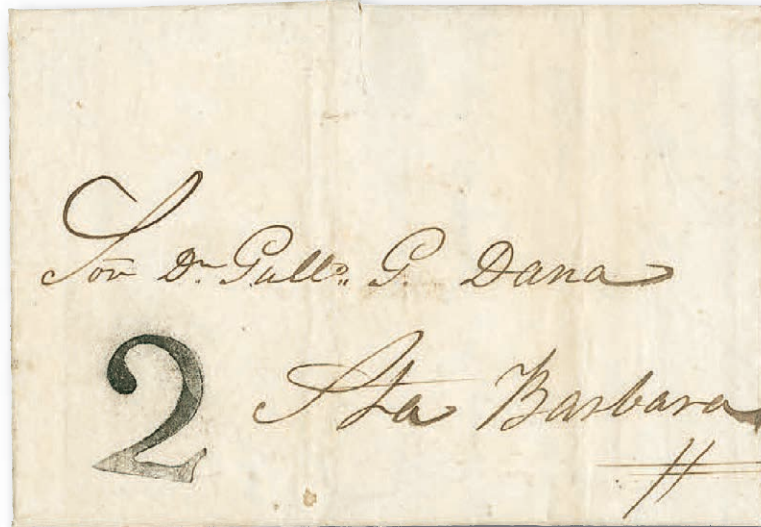 Sor Dn Guillo G. Dana
2 Sta Barbara